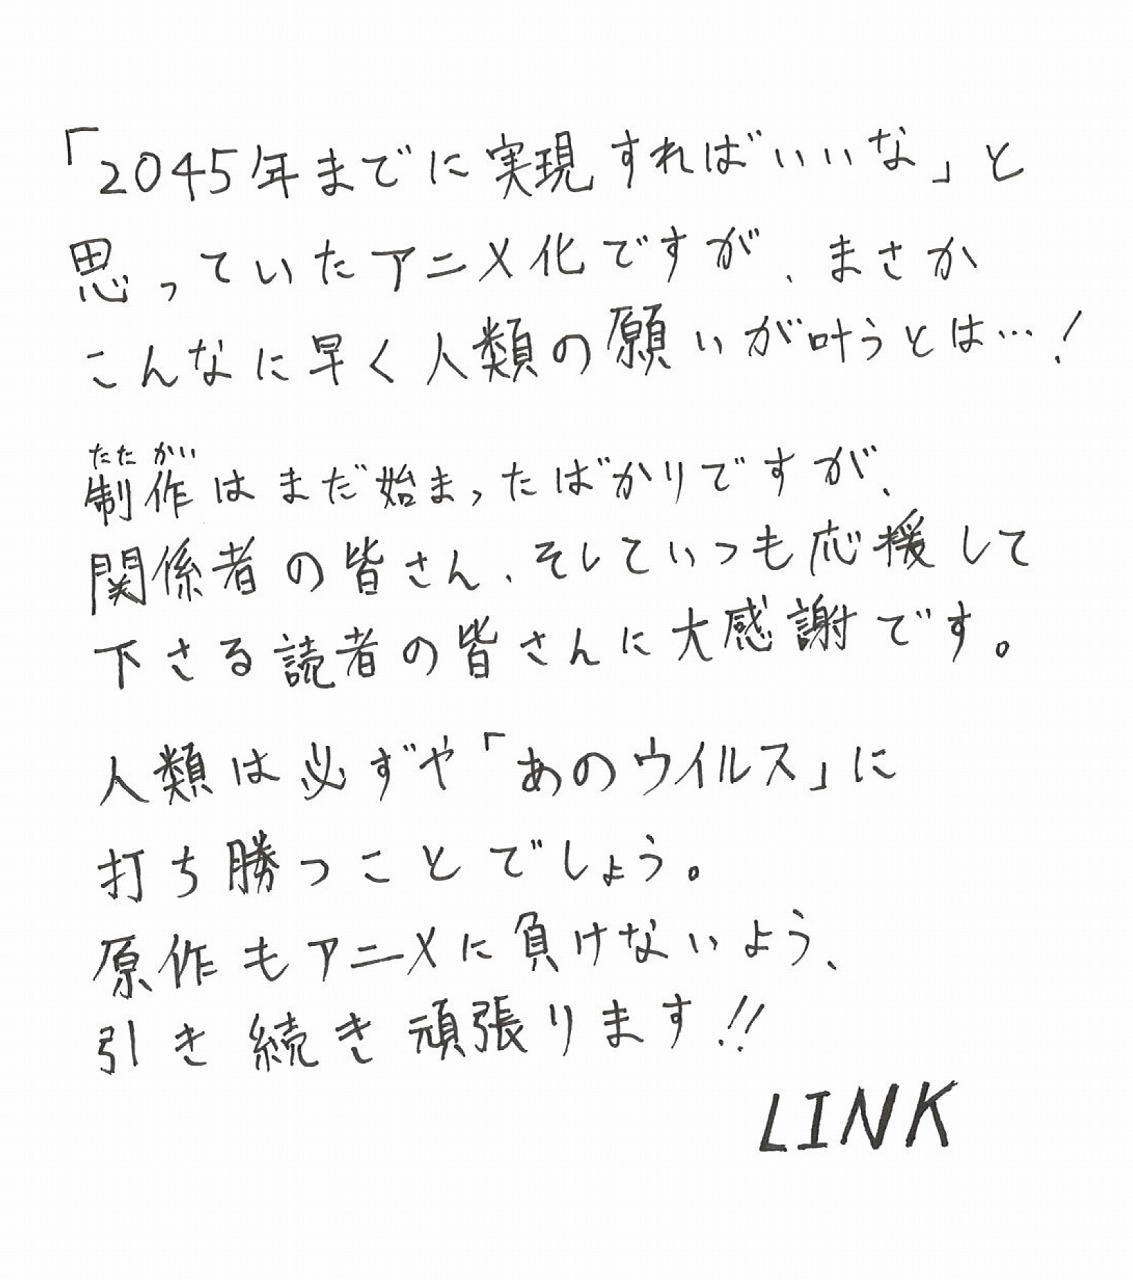 「2045年までに実現すればいいな」と
思っていたアニメ化ですが、まさか
こんなに早く人類の願いが叶うとは…！
たたかい
制作はまだ始まったばかりですが、
関係者の皆さん、そしていつも応援して
下さる読者の皆さんに大感謝です。
人類は必ずや「あのウイルス」に
打ち勝つことでしょう。
原作もアニメに負けないよう、
引き続き頑張ります!!
LINK